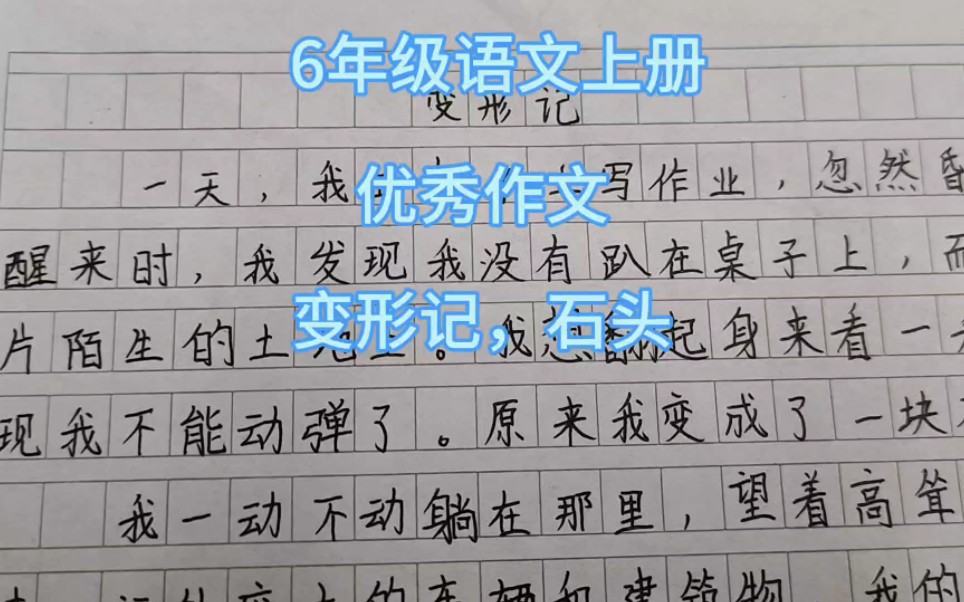 6年级语文上册
变形记
一天，我写作业，忽然昏
优秀作文
醒来时，我发现我没有趴在桌子上，而
变形记，石头
片陌生的土。我想起身来看一
现我不能动弹了。原来我变成了一块
我一动不动躺在那里，望着高耸
的车辆和建筑物 我的